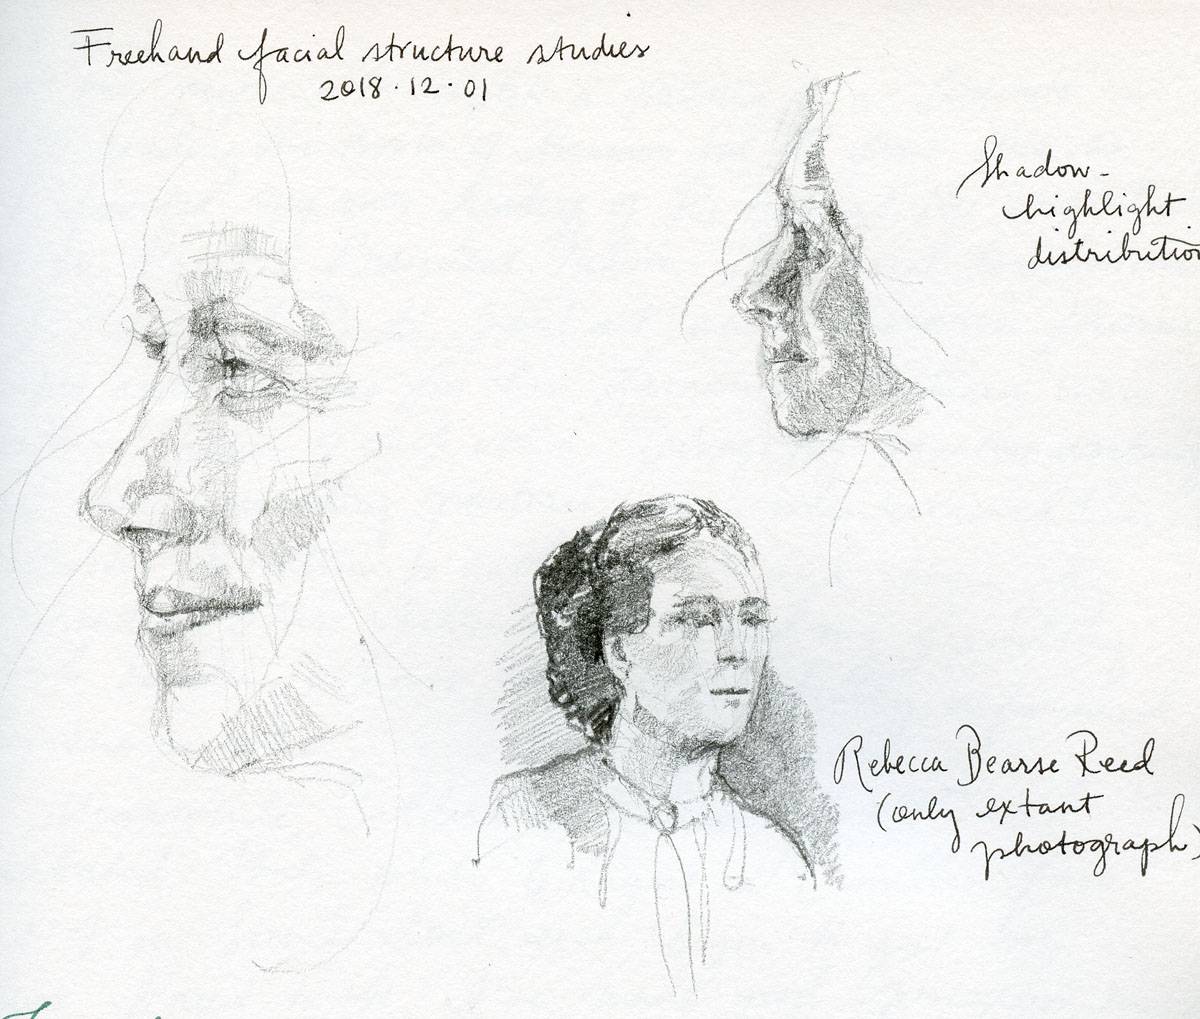 Freehand facial structure studies
2018.12.01
Shadow-
highlight
distribution
Rebecca Bearse Reed
(only extant
photograph)